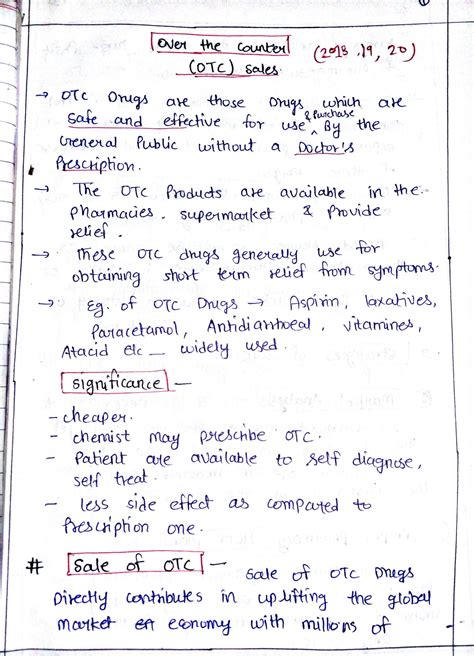 ①
Over the counter
(OTC) Sales.
(2018, 19, 20)
→ OTC Drugs are those Drugs which are
& Purchase
Safe and effective for use ^ By the
General Public without a Doctor's
Prescription.
→ The OTC Products are available in the
Pharmacies. supermarket & Provide
relief.
→ These OTC drugs generally use for
obtaining short term relief from symptoms.
→ Eg. of OTC Drugs → Aspirin, laxatives,
Paracetamol, Antidiarrhoeal, vitamines,
Atacid etc — widely used.
Significance —
- cheaper.
- chemist may prescribe OTC.
- Patient are available to self diagnose,
self treat.
- less side effect as compared to
Prescription one.
# Sale of OTC —
Sale of OTC Drugs
Directly contributes in uplifting the global
market economy with millions of